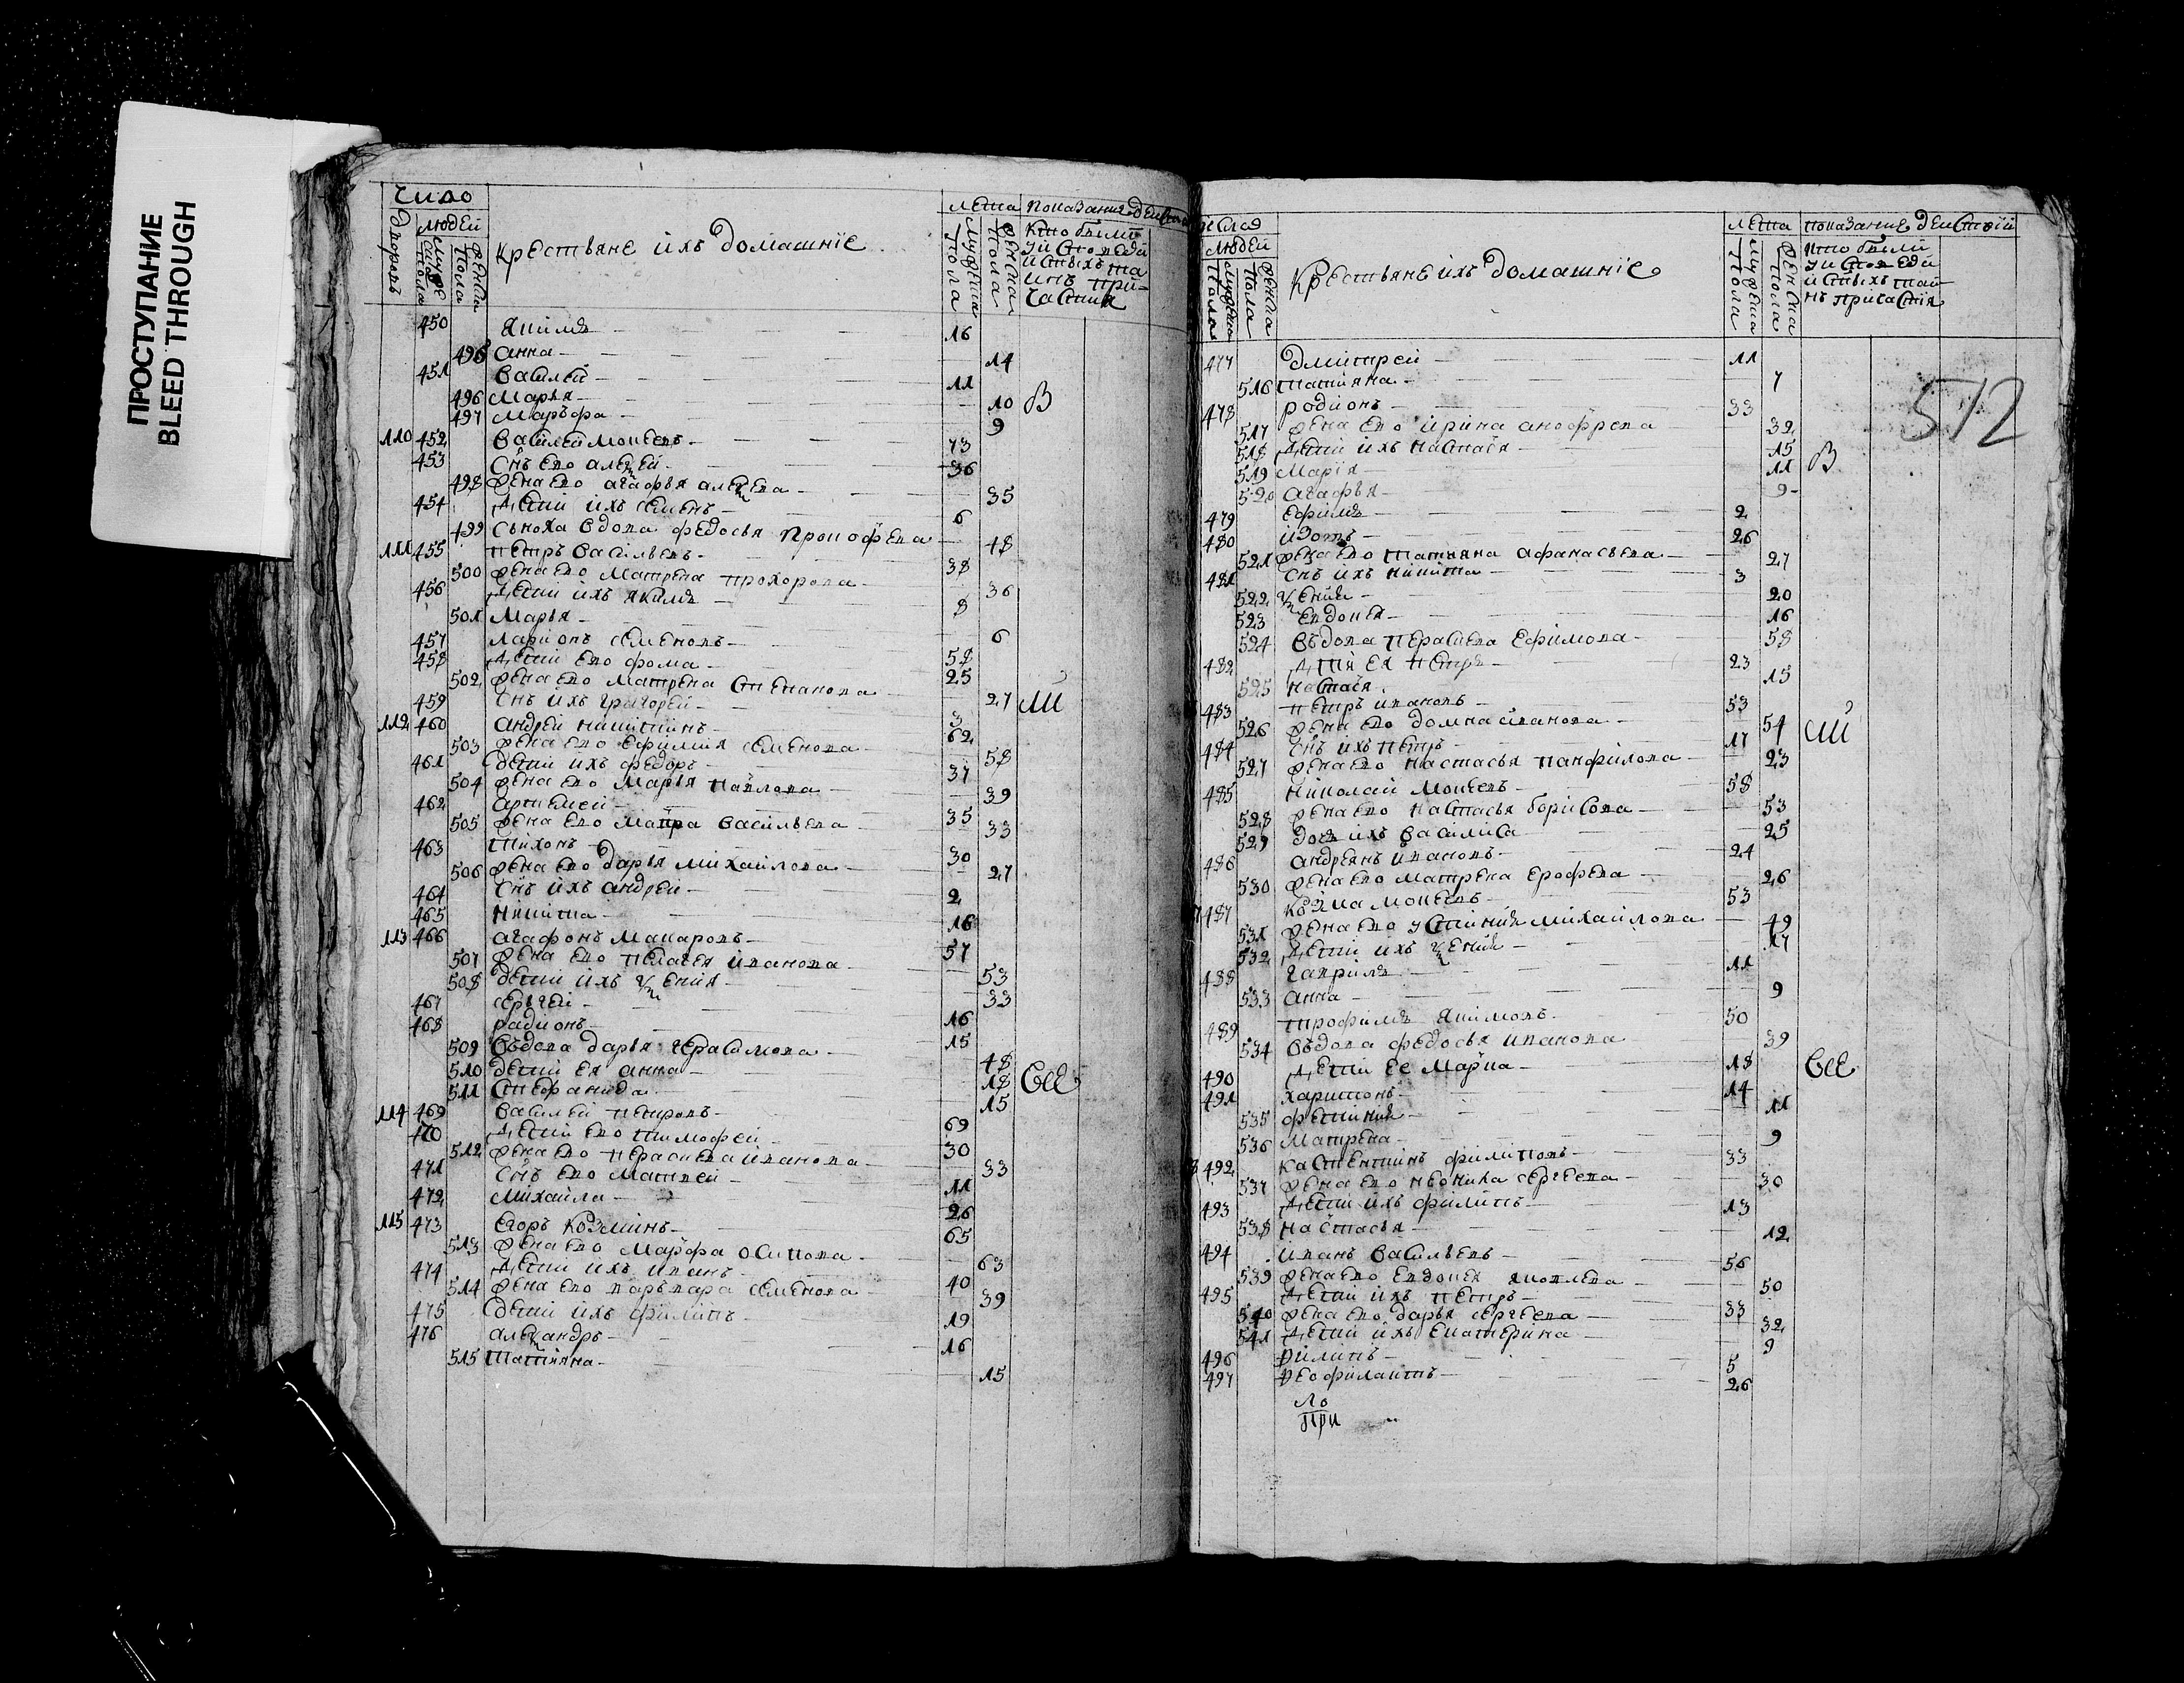 ПРОСТУПАНИЕ
BLEED THROUGH
число
людей
крестьяне ихъ домашние
лета показание действ
Кто были
у исповеди
и святыхъ та
инъ при-
частия
450 Якимъ 16
495 анна 14
451 василей 11
496 Марья 10 В
497 Маръфа 9
110 452 василей Мокеевъ 73
453 снъ ево алексей 36
498 жена ево агафья алексеева 35
454 дети ихъ семенъ 6
499 сноха вдова федосья прокофева 48
111 455 петръ васильевъ 38
500 жена ево матрена прохорова 36
456 дети ихъ якимъ 8
501 Марья 6
457 ларионъ семеновъ 58
458 дети ево фома 25
502 жена ево матрена степанова 27 си
459 снъ ихъ григорей 3
112 460 андрей никитинъ 62
503 жена ево Ефимия семенова 58
461 дети ихъ федоръ 37
504 жена ево Марья павлова 39
462 артемей 35
505 жена ево мавра васильева 33
463 тихонъ 30
506 жена ево дарья михайлова 27
464 снъ ихъ андрей 2
465 никита 16
113 466 агафонъ макаровъ 57
507 жена ево пелагея иванова 53
508 дети ихъ ксения 33
467 сергей 16
468 радионъ 15
509 въдова дарья герасимова 48
510 дети ея анна 18 все
511 стефанида 15
114 469 василей петровъ 69
470 дети ево тимофей 30
512 жена ево парасковья иванова 33
471 снъ ево матвей 11
472 михайла 26
115 473 егоръ козминъ 65
513 жена ево марфа осипова 63
474 дети ихъ иванъ 40
514 жена ево варъвара семенова 39
475 дети ихъ филипъ 19
476 александръ 16
515 татияна 15
числа
людей
крестьяне ихъ домашние
лета показание действий
кто были
у исповеди
и святыхъ тай
нъ причастия
512
477 дмитрей 11
516 татияна 7
478 родионъ 33
517 жена ево ирина анофрева 32
518 дети ихъ настасья 15
519 мария 11 В
520 агафья 9
479 ефимъ 2
480 изотъ 26
521 жена ево татияна афанасьева 27
481 снъ ихъ никита 3
522 ксения 20
523 евдокея 16
524 въдова парасковья ефимова 58
482 дети ея петръ 23
525 настасья 15
483 петръ ивановъ 53
526 жена ево домна иванова 54 си
484 снъ ихъ петръ 17
527 жена ево настасья панфилова 23
485 николай мокеевъ 58
528 жена ево настасья борисова 53
529 дочь ихъ василиса 25
486 андреянъ ивановъ 24
530 жена ево матрена ерофеева 26
487 козма мокеевъ 53
531 жена ево устиния михайлова 49
532 дети ихъ ксения 17
488 гаврила 11
533 анна 9
489 трофимъ якимовъ 50
534 въдова федосья иванова 39
490 дети ее марка 18 все
491 харитонъ 14
535 фетиния 11
536 матрена 9
492 костентинъ филиповъ 33
537 жена ево невонила сергеева 30
493 дети ихъ филипъ 13
538 настасья 12
494 иванъ васильевъ 56
539 жена ево евдокея яковлева 50
495 дети ихъ петръ 33
540 жена ево дарья сергеева 32
541 дети ихъ екатерина 9
496 филипъ 5
497 феофилактъ 26
по
при